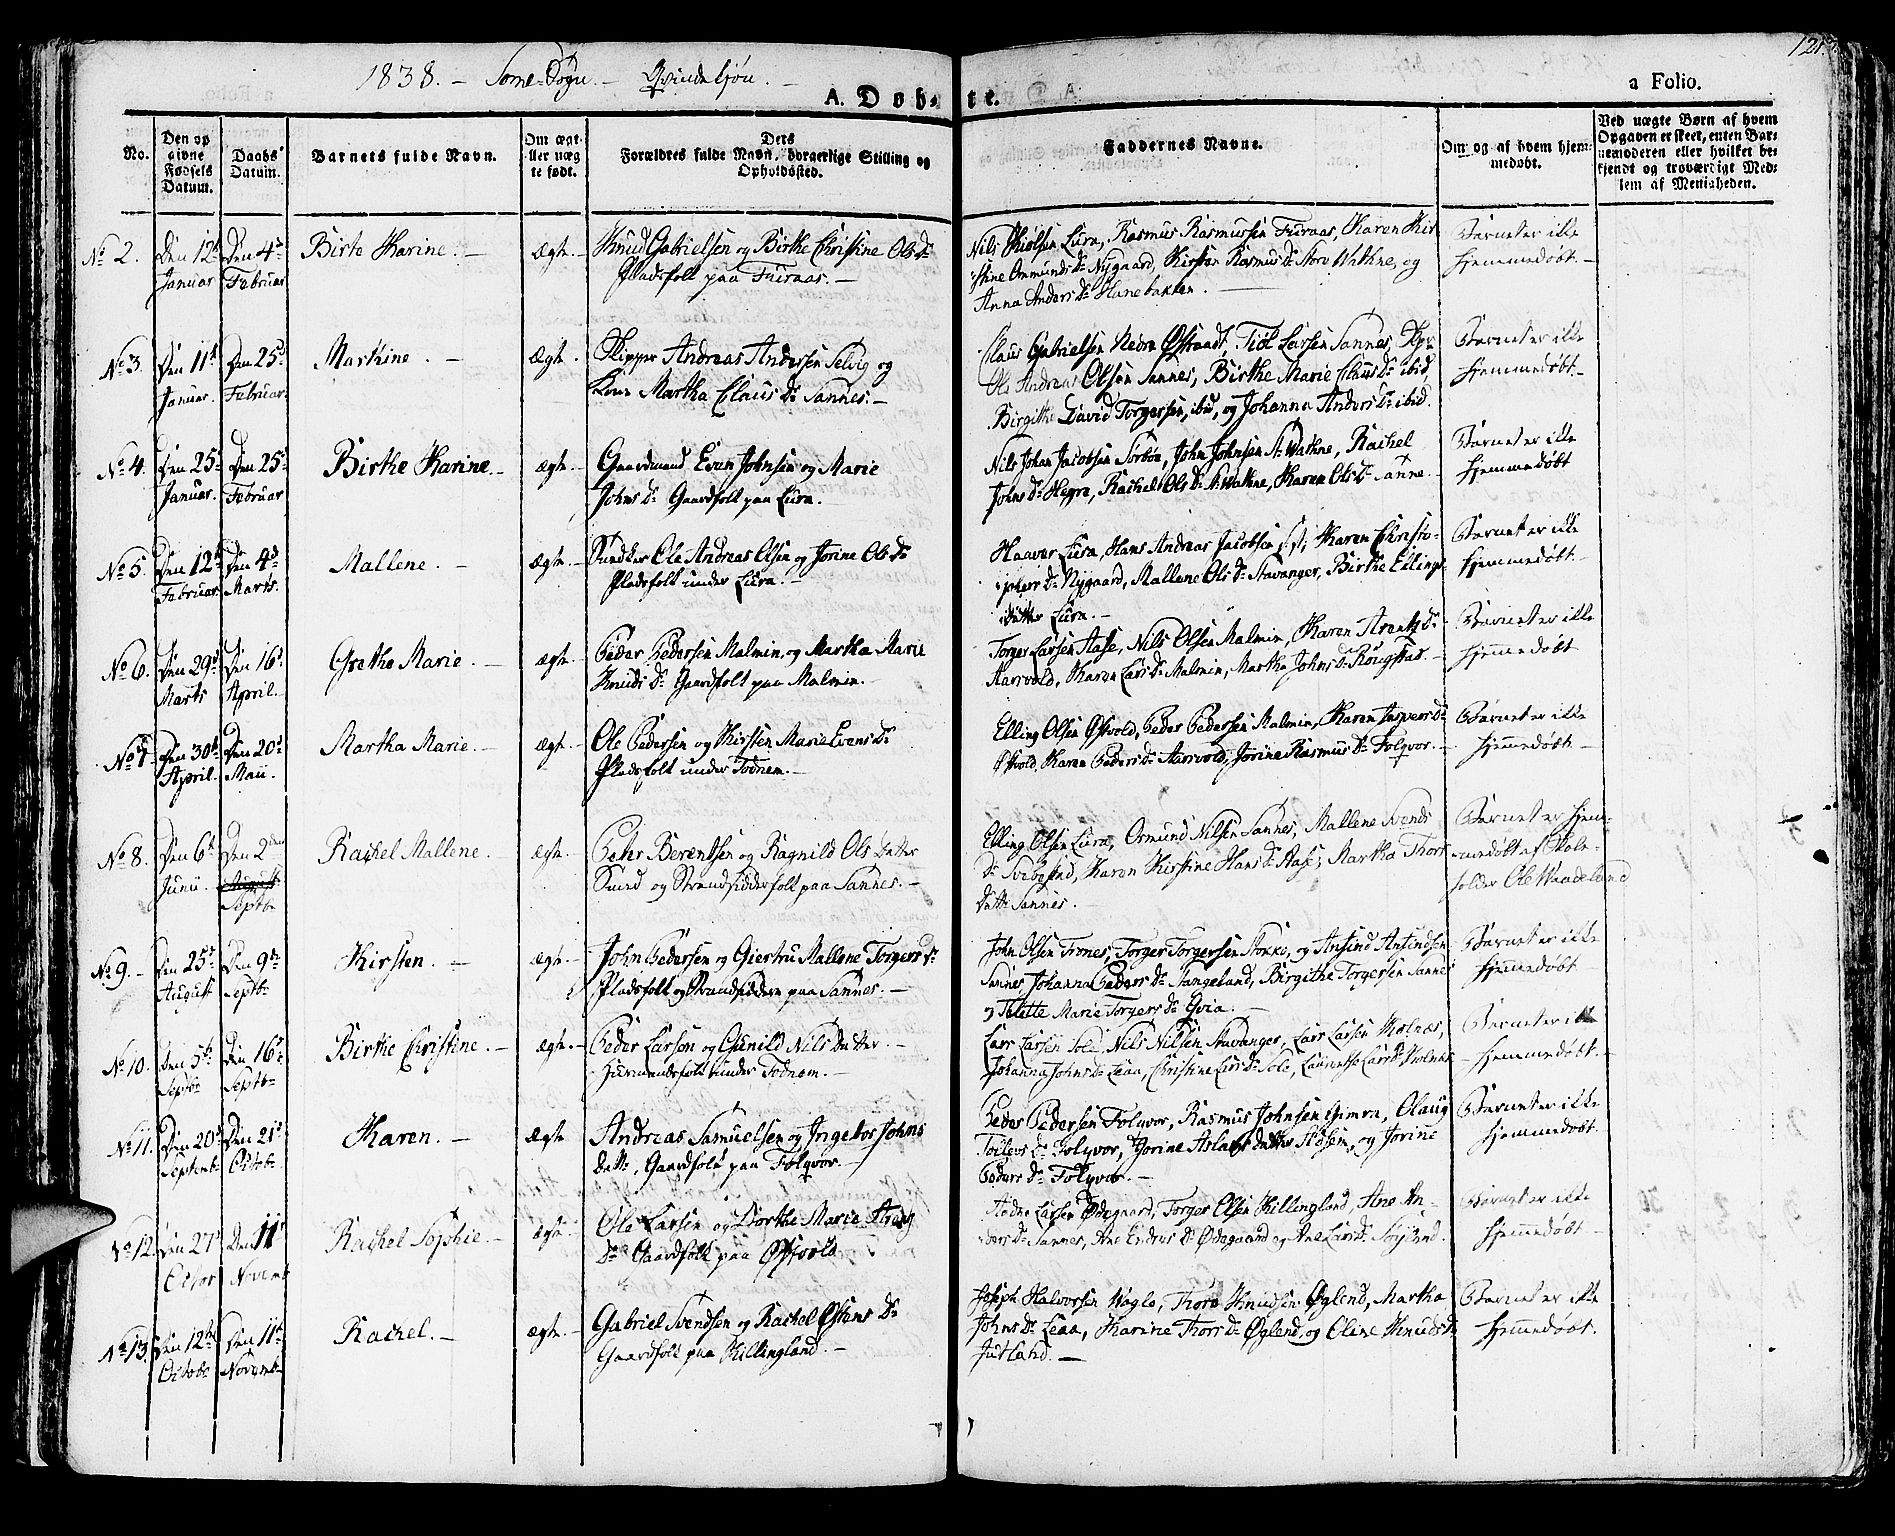 1838. - Some Sogn. - Qvindekjøn.
121
A. Døbte.
a Folio.
No.
Den op
givne
Fødsels
Datum.
Daabs
Datum.
Barnets fulde Navn.
Om ægt-
eller uæg
te født.
Dets
Forældres fulde Navn, borgerlige Stilling og
Opholdssted.
Faddernes Navne.
Om og af hvem hjem-
medøbt.
Ved uægte Børn af hvem
Opgaven er skeet, enten Bar-
nemoderen eller hvilket be-
kjendt og troværdigt Med-
lem af Menigheden.
No 2.
Den 12te
Januar
Den 4de
Februar
Birte Karine. -
Ægte. -
Knud Gabrielsen og Birthe Christine Ols Dr
Pladsfolk paa Furaas. -
Nils Lura, Rasmus Rasmussen Furaas, Karen Kir-
stine Ommunds Dr Nygaard, Kirsten Rasmus Dr Store Wathne, og
Anna Anders Dr Hanebakken.
Barnet er ikke
hjemmedøbt -
No 3.
Den 11te
Januar.
Den 25de
Februar.
Martine. -
Ægte.
Skipper Andreas Andersen Selvig og
Kone Martha Claus Dr Sannes. -
Claus Gabrielsen Nedre Østraadt, Tiøl Larsen Sannes,
Ole Andreas Olsen Sannes, Birthe Marie Claus Dr ibid,
Birgithe David Torgersen, ibid, og Johanna Anders Dr ibid.
Barnet er ikke
hjemmedøbt -
No 4.
Den 25de
Januar.
Den 25de
Februar
Birthe Karine. -
Ægte. -
Gaardmand Even Johnsen og Marie
Johns Dr Gaardfolk paa Lura. -
Nils Johan Jacobsen Sørbøe, John Johnsen St. Wathne, Rachel
Johns Dr Hegre, Rachel Ols Dr St. Wathne, Karen Ols Dr Sanne. -
Barnet er ikke
hjemmedøbt
No 5.
Den 12te
Februar
Den 4de
Marts.
Mallene. -
Ægte. -
Snedker Ole Andreas Olsen og Jorine Ols Dr
Pladsfolk under Lura. -
Haaver Lura, Hans Andreas Jacobsen ibid, Karen Christo-
phers Dr Nygaard, Mallene Ols Dr Stavanger, Birthe Ellings
datter Lura. -
Barnet er ikke
hjemmedøbt -
No 6.
Den 29de
Marts
Den 16de
April.
Grethe Marie. -
Ægte. -
Peder Pedersen Malmin, og Martha Marie
Knuds Dr Gaardfolk paa Malmin. -
Torger Larsen Aase, Nils Olsen Malmin, Karen Arents Dr
Aarsvold, Karen Lars Dr Malmin, Martha Johns Dr Rougstad. -
Barnet er ikke
hjemmedøbt
No 7.
Den 30te
April.
Den 20de
Maii.
Martha Marie. -
Ægte. -
Ole Pedersen og Kirsten Marie Evens Dr
Pladsfolk under Todnem. -
Elling Olsen Østvold, Peder Pedersen Malmin, Karen Jaspers Dr
Østvold, Karen Peders Dr Aarsvold, Jorine Rasmus Dr Folqvor. -
Barnet er ikke
hjemmedøbt -
No 8.
Den 6te
Junii.
Den 2den
August
Septbr
Rachel Mallene.
Ægte. -
Pehr Berentsen og Ragnild Ols datter
Smed og Strandsidderfolk paa Sannes. -
Elling Olsen Lura, Osmund Nilsen Sannes, Mallene Svends
Dr Svebestad, Karen Kirstine Hans Dr Aase, Martha Thors
datter Sannes.
Barnet er hjem-
medøbt af Skole-
holder Ole Waadeland
No 9. -
Den 25de
August
Den 9de
Septbr
Kirsten. -
Ægte. -
John Pedersen og Giertru Mallene Torgers Dr
Pladsfolk og Strandsiddere paa Sannes. -
John Olsen Trones, Torger Torgersen Stokke, og Ansind Ansindsen
Sannes, Johanna Peders Dr Stangeland, Birgithe Torgersen Sannes
og Telette Marie Torgers Dr Qvia. -
Barnet er ikke
hjemmedøbt
No 10.
Den 5te
Septbr
Den 16de
Septbr
Birthe Christine. -
Ægte. -
Peder Larsen og Gunild Nils datter. -
Huusmandsfolk under Todnem. -
Lars Larsen Sole, Nils Nilsen Stavanger, Lars Larsen Kolnæs,
Johanna Johns Dr Leaa, Christine Lars Dr Sole, Laurentse Lars Dr Kolnes
Barnet er ikke
- hjemmedøbt. -
No 11.
Den 20de
Septembr
Den 21de
Octobr
Karen. -
Ægte
Andreas Samuelsen og Ingebor Johns
datter, Gaardfolk paa Folqvor. -
Peder Pedersen Folqvor, Rasmus Johnsen Gimra, Olaug
Toilevs Dr Folqvor, Jorine Aslags datter Stosen, og Jorine
Peders Dr Folqvor. -
Barnet er ikke
hjemmedøbt.
No 12.
Den 27de
Octor
Den 11te
Novembr
Rachel Sophie. -
Ægte. -
Ole Larsen og Dorthe Marie
Dr Gaardfolk paa Østvold
Aadne Larsen Ødegaard, Torger Olsen Killingland, Ane An-
ders Dr Sannes, Ane Endres Dr Ødegaard og Ane Lars Dr Soyland.
Barnet er ikke
hjemmedøbt -
No 13.
Den 12te
Octobr
Den 11te
Novembr
Rachel. -
Ægte. -
Gabriel Svendsen og Rachel Østens Dr
Gaardfolk paa Killingland. -
Joseph Halvorsen Vagle, Thore Knudsen Øglend, Martha
Johns Dr Leaa, Karine Thors Dr Øglend, og Eline Knuds Dr
Jutland. -
Barnet er ikke
hjemmedøbt.